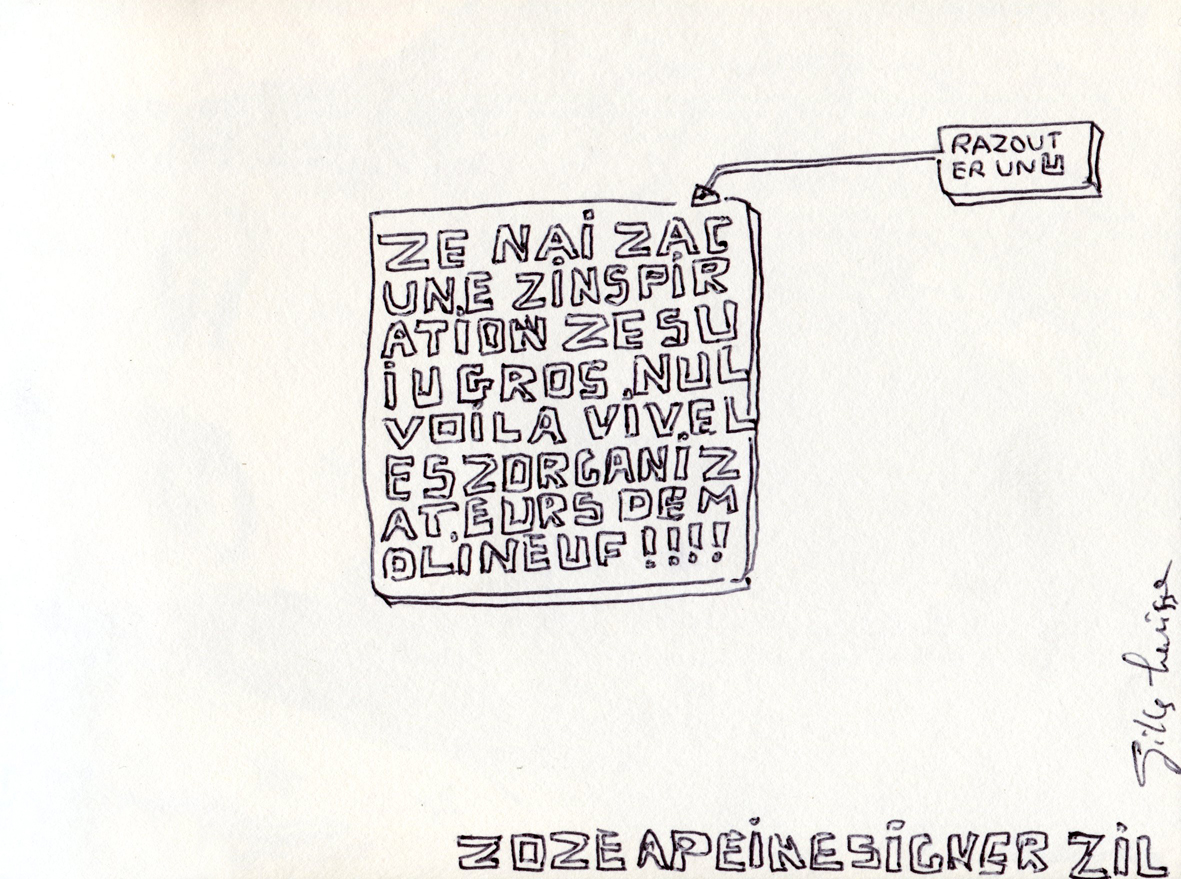 RAZOUT
ER UNE
ZE NAI ZAC
UNE ZINSPIR
ATION ZESU
IUGROS.NUL
VOILA VIVEL
ESZORGANIZ
ATEURS DEM
OLINEUF !!!!
ZOZEAPEINESIGNER ZIL